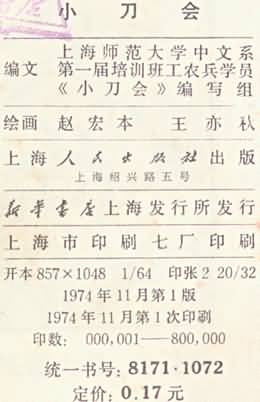 小刀会
编文
上海师范大学中文系
第一届培训班工农兵学员
《小刀会》编写组
绘画 赵宏本 王亦秋
上海人民出版社出版
上海绍兴路五号
新华书店上海发行所发行
上海市印刷七厂印刷
开本857×1048 1/64 印张2 20/32
1974年11月第1版
1974年11月第1次印刷
印数: 000,001—800,000
统一书号: 8171·1072
定价: 0.17元